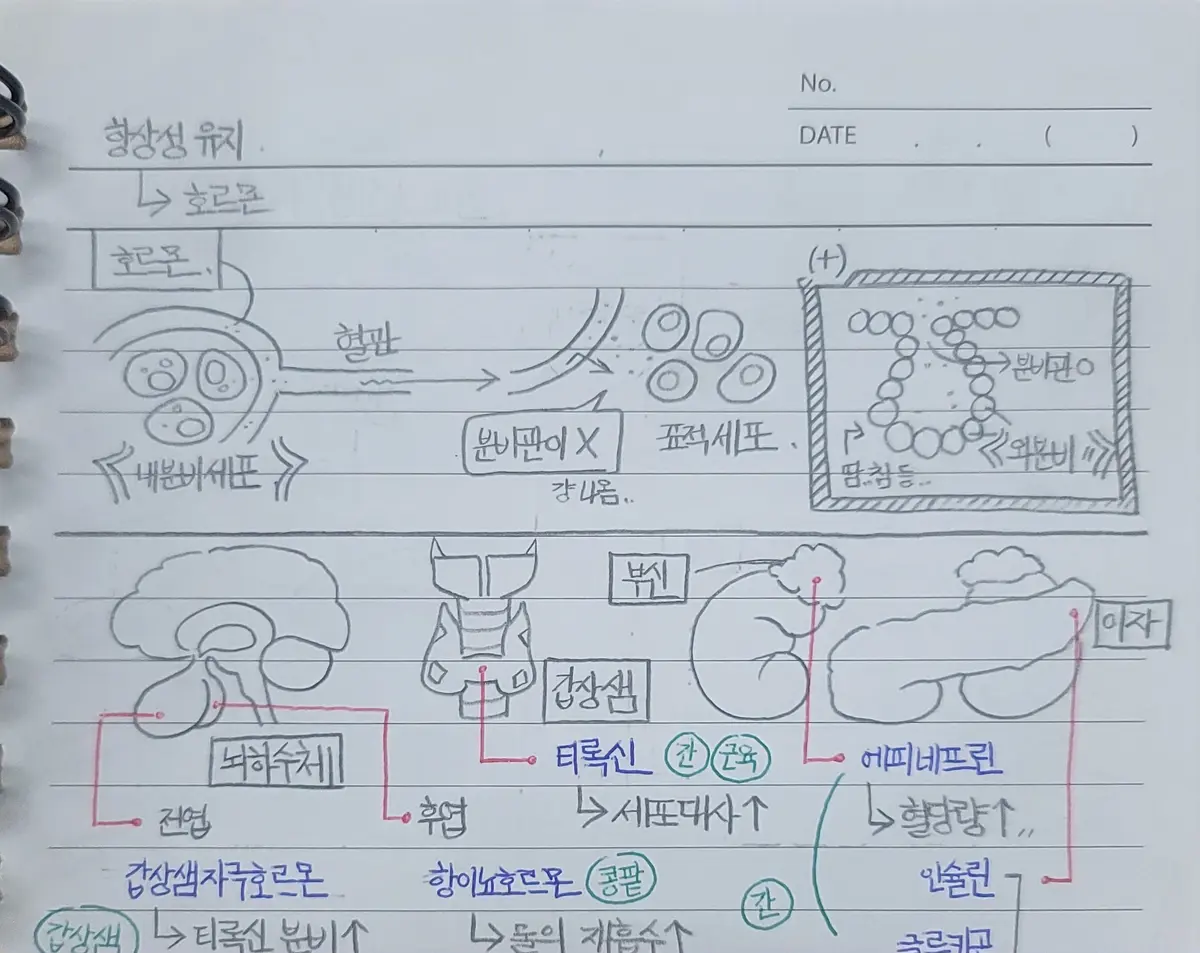 No.
DATE . . ( )
항상성 유지.
↳ 호르몬
호르몬.
(+)
혈관
분비관 O
분비관이 X
표적세포.
《내분비세포》
걍 나옴..
《외분비》
땀..침 등..
부신
이자
갑상샘
뇌하수체
티록신 간 근육
에피네프린
전엽
후엽
↳세포대사↑
↳혈당량↑..
갑상샘자극호르몬
항이뇨호르몬 콩팥
인슐린
간
갑상샘
↳티록신 분비↑
↳물의 재흡수↑
글루카곤